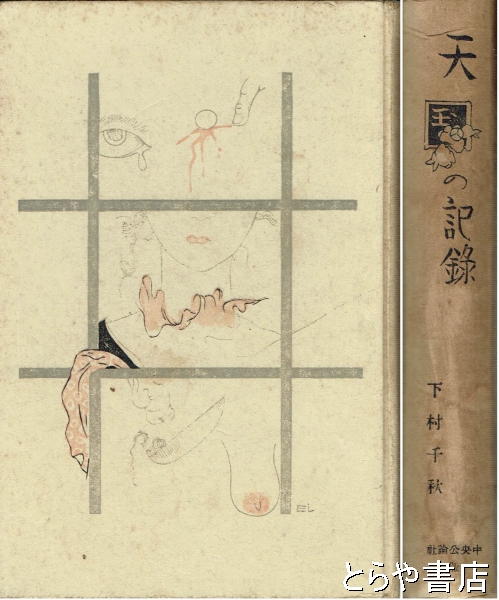 天国の記錄
下村千秋
中央公論社
EL
とらや書店